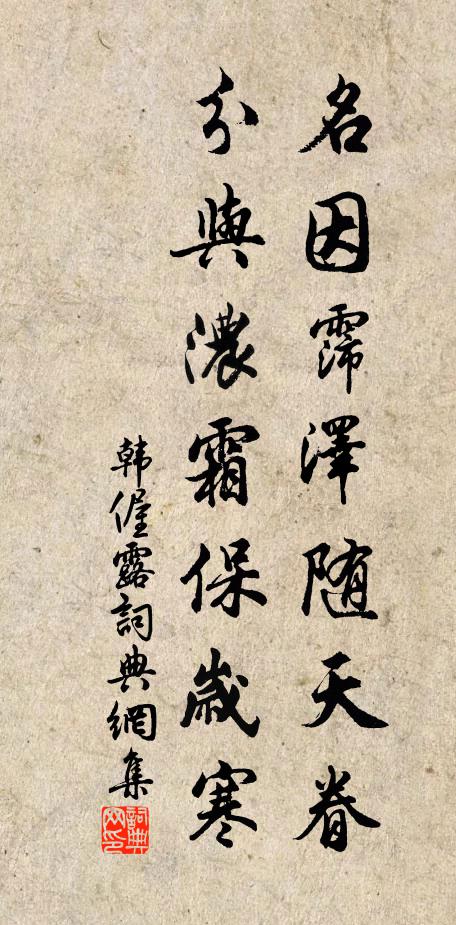 名因霈澤随天眷
分與濃霜保歲寒
韩偓露詞典網集
詞典网印